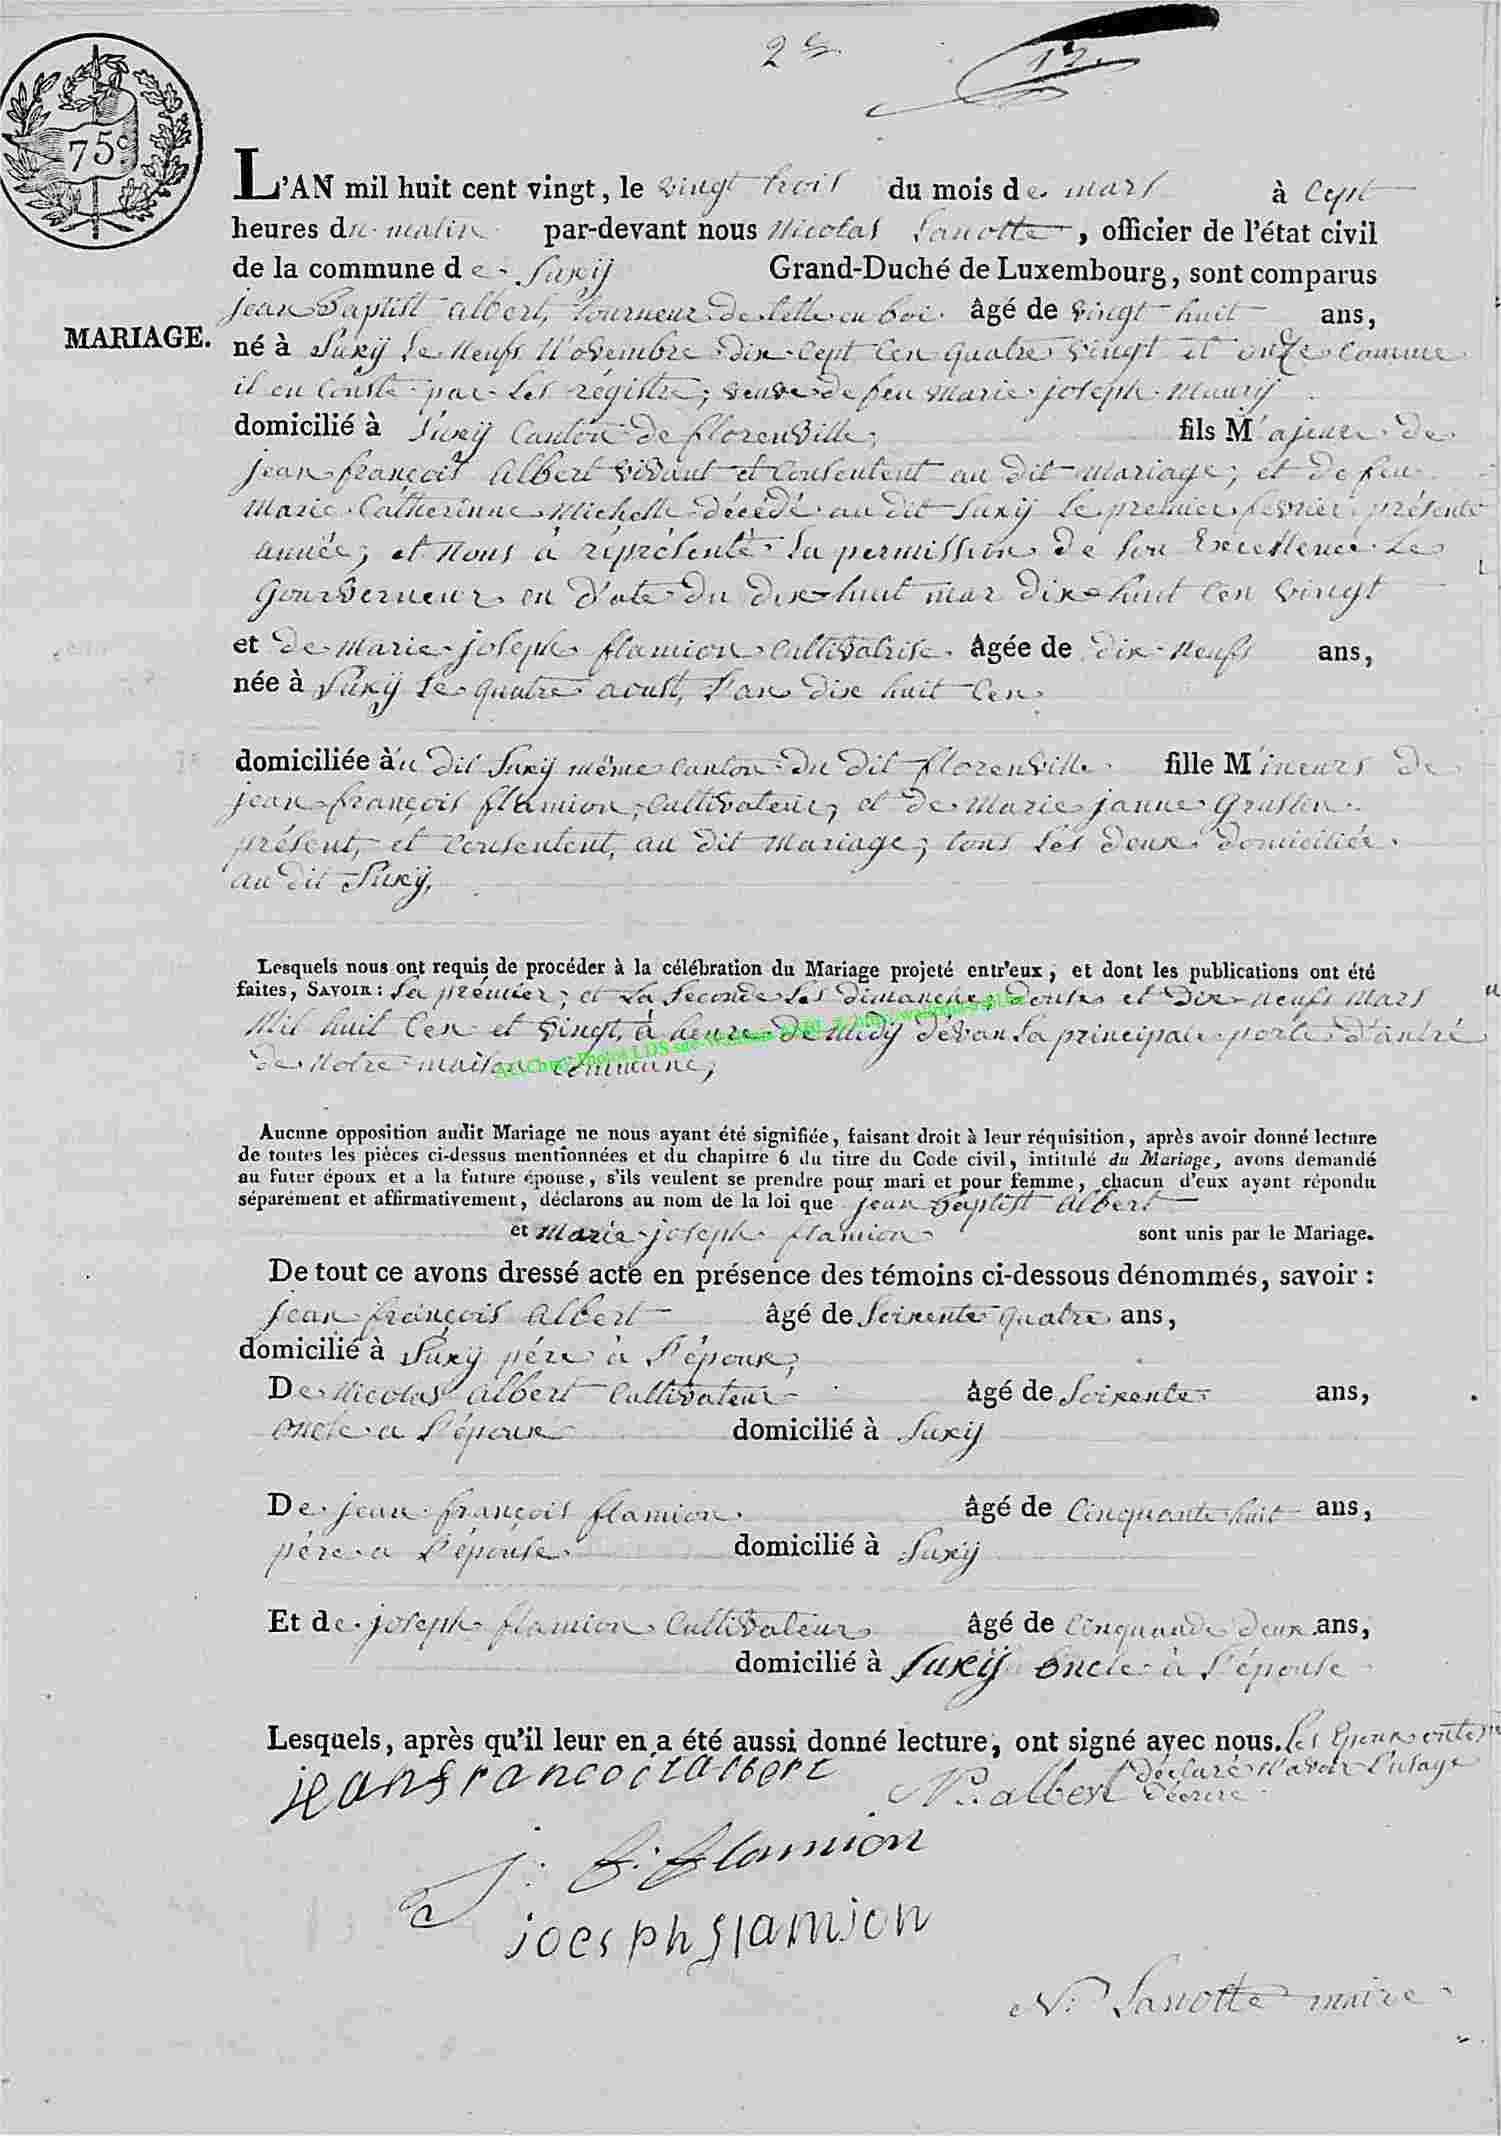 2e
17.
75c
L'AN mil huit cent vingt, le vingt trois du mois de mars à cept
heures du matin par-devant nous Nicolas Lanotte, officier de l'état civil
de la commune de Suxÿ Grand-Duché de Luxembourg, sont comparus
jean Baptist albert, tourneur de telle en boi âgé de vingt huit ans,
MARIAGE.
né à Suxÿ le neufs Novembre dix cept cen quatre vingt et onze comme
il en conste par les régistre; veuve de feu marie joseph Maurÿ
domicilié à Suxÿ Canton de florenville; fils M'ajeure de
jean françois albert vivant et consentent au dit mariage; et de feu
Marie Catherinne Michelle décédé au dit Suxÿ le premier fevrier présente
année; et nous à réprésenté la permission de son Excellence le
Gourverneur en d'ate du dix-huit mar dix-huit cen vingt
et de marie joseph flamion Cultivatrise âgée de dix neufs ans,
née à Suxÿ le quatre aoust, l'an dix huit Cen
domiciliée àu dit Suxÿ même canton du dit florenville fille M'ineurs de
jean françois flamion, cultivateur, et de Marie janne Groslen
présent, et consentent, au dit mariage; tous les deux domiciliée
au dit Suxÿ,
Lesquels nous ont requis de procéder à la célébration du Mariage projeté entr'eux, et dont les publications ont été
faites, SAVOIR: la prémier; et la seconde les dimanche, douse et dix-neufs Mars
Mil huit Cen et vingt, à heure de Midÿ dévan la principale porte d'antré
de Notre maison commune;
Aucune opposition audit Mariage ne nous ayant été signifiée, faisant droit à leur réquisition, après avoir donné lecture
de toutes les pièces ci-dessus mentionnées et du chapitre 6 du titre du Code civil, intitulé du Mariage, avons demandé
au futur époux et a la future épouse, s'ils veulent se prendre pour mari et pour femme, chacun d'eux ayant répondu
séparément et affirmativement, déclarons au nom de la loi que jean Baptist albert
et Marie joseph flamion sont unis par le Mariage.
De tout ce avons dressé acte en présence des témoins ci-dessous dénommés, savoir :
jean françois albert âgé de Soixente quatre ans,
domicilié à Suxÿ pére à l'époux;
De Nicolas albert Cultivateur âgé de Soixente ans,
oncle a l'époux domicilié à Suxÿ
De jean françois flamion âgé de Cinquante huit ans,
pére a l'épouse domicilié à Suxÿ
Et de joseph flamion Cultivateur âgé de Cinquande deux ans,
domicilié à Suxÿ oncle à l'épouse
Lesquels, après qu'il leur en a été aussi donné lecture, ont signé avec nous. les Epoux onte
déclaré n'avoir l'usage
décrire
jean francois albert N: albert
j: f: flamion
joesph flamion
N: Lanotte maire